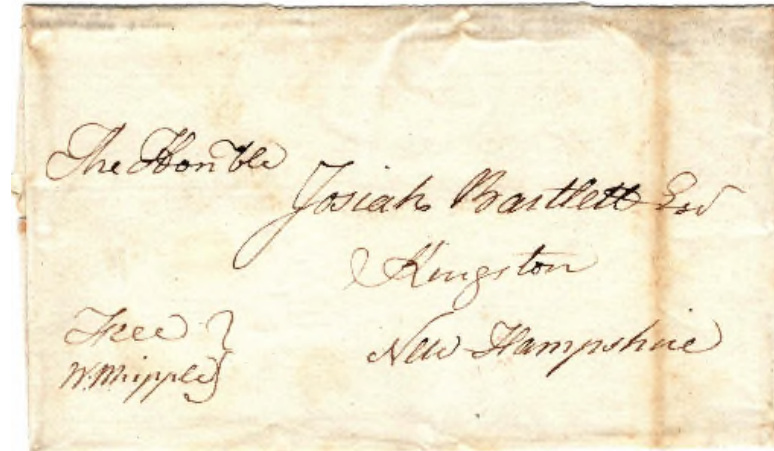 The Honble
Josiah Bartlett Esqr
Kingston
New Hampshire
Free
W. Whipple